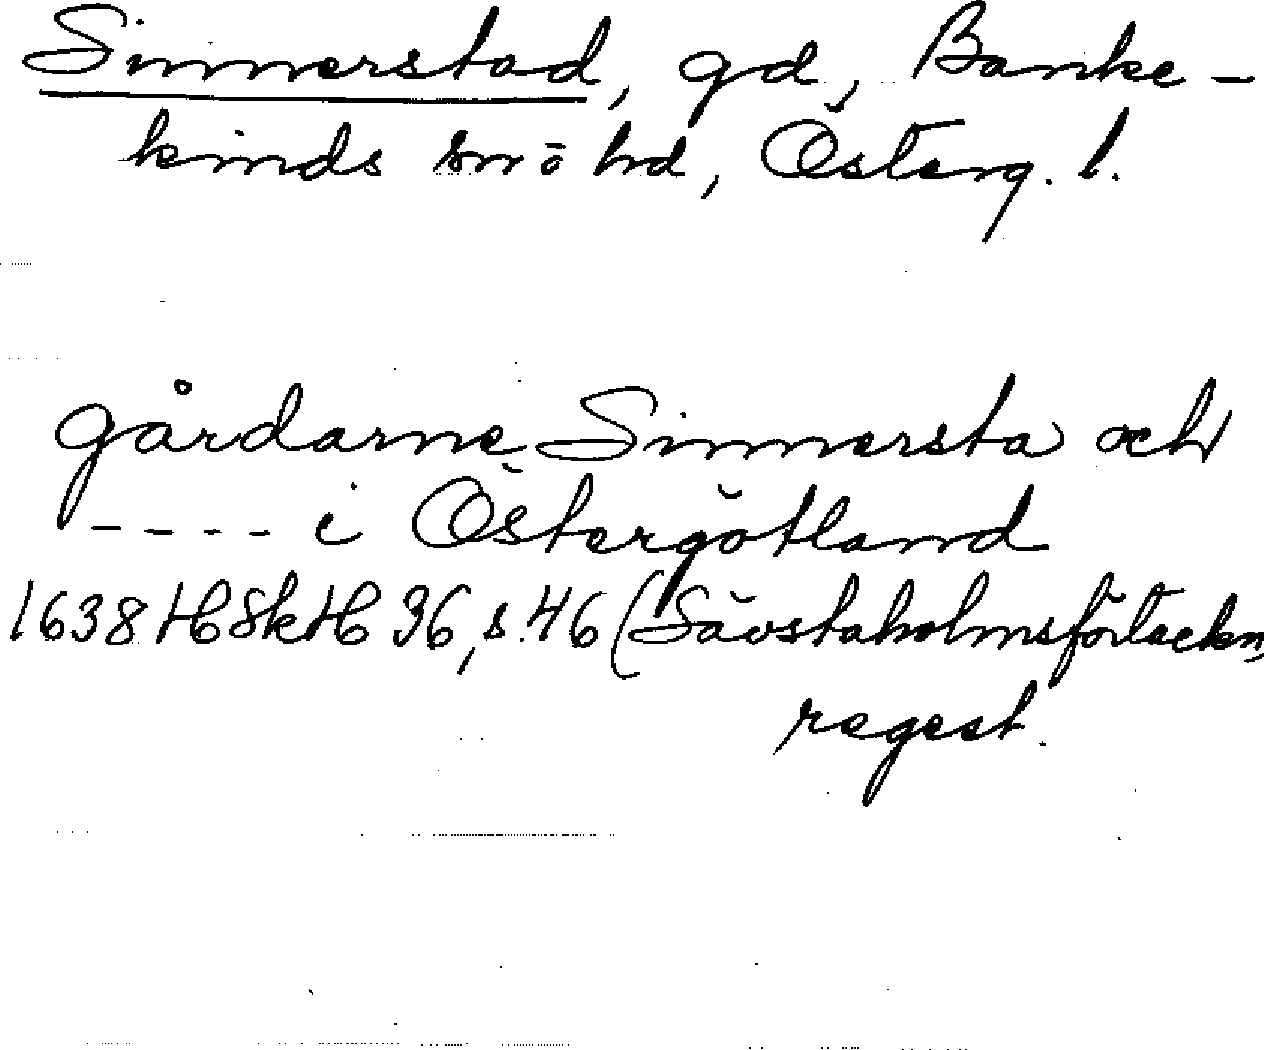 Sinnerstad, gd, Banke-
kinds sn o hd, Österg. l.
gårdarne Sinnersta och
---- i Östergötland
1638 HSkH 36, s. 46 (Sävstaholmsförteckn,
regest.